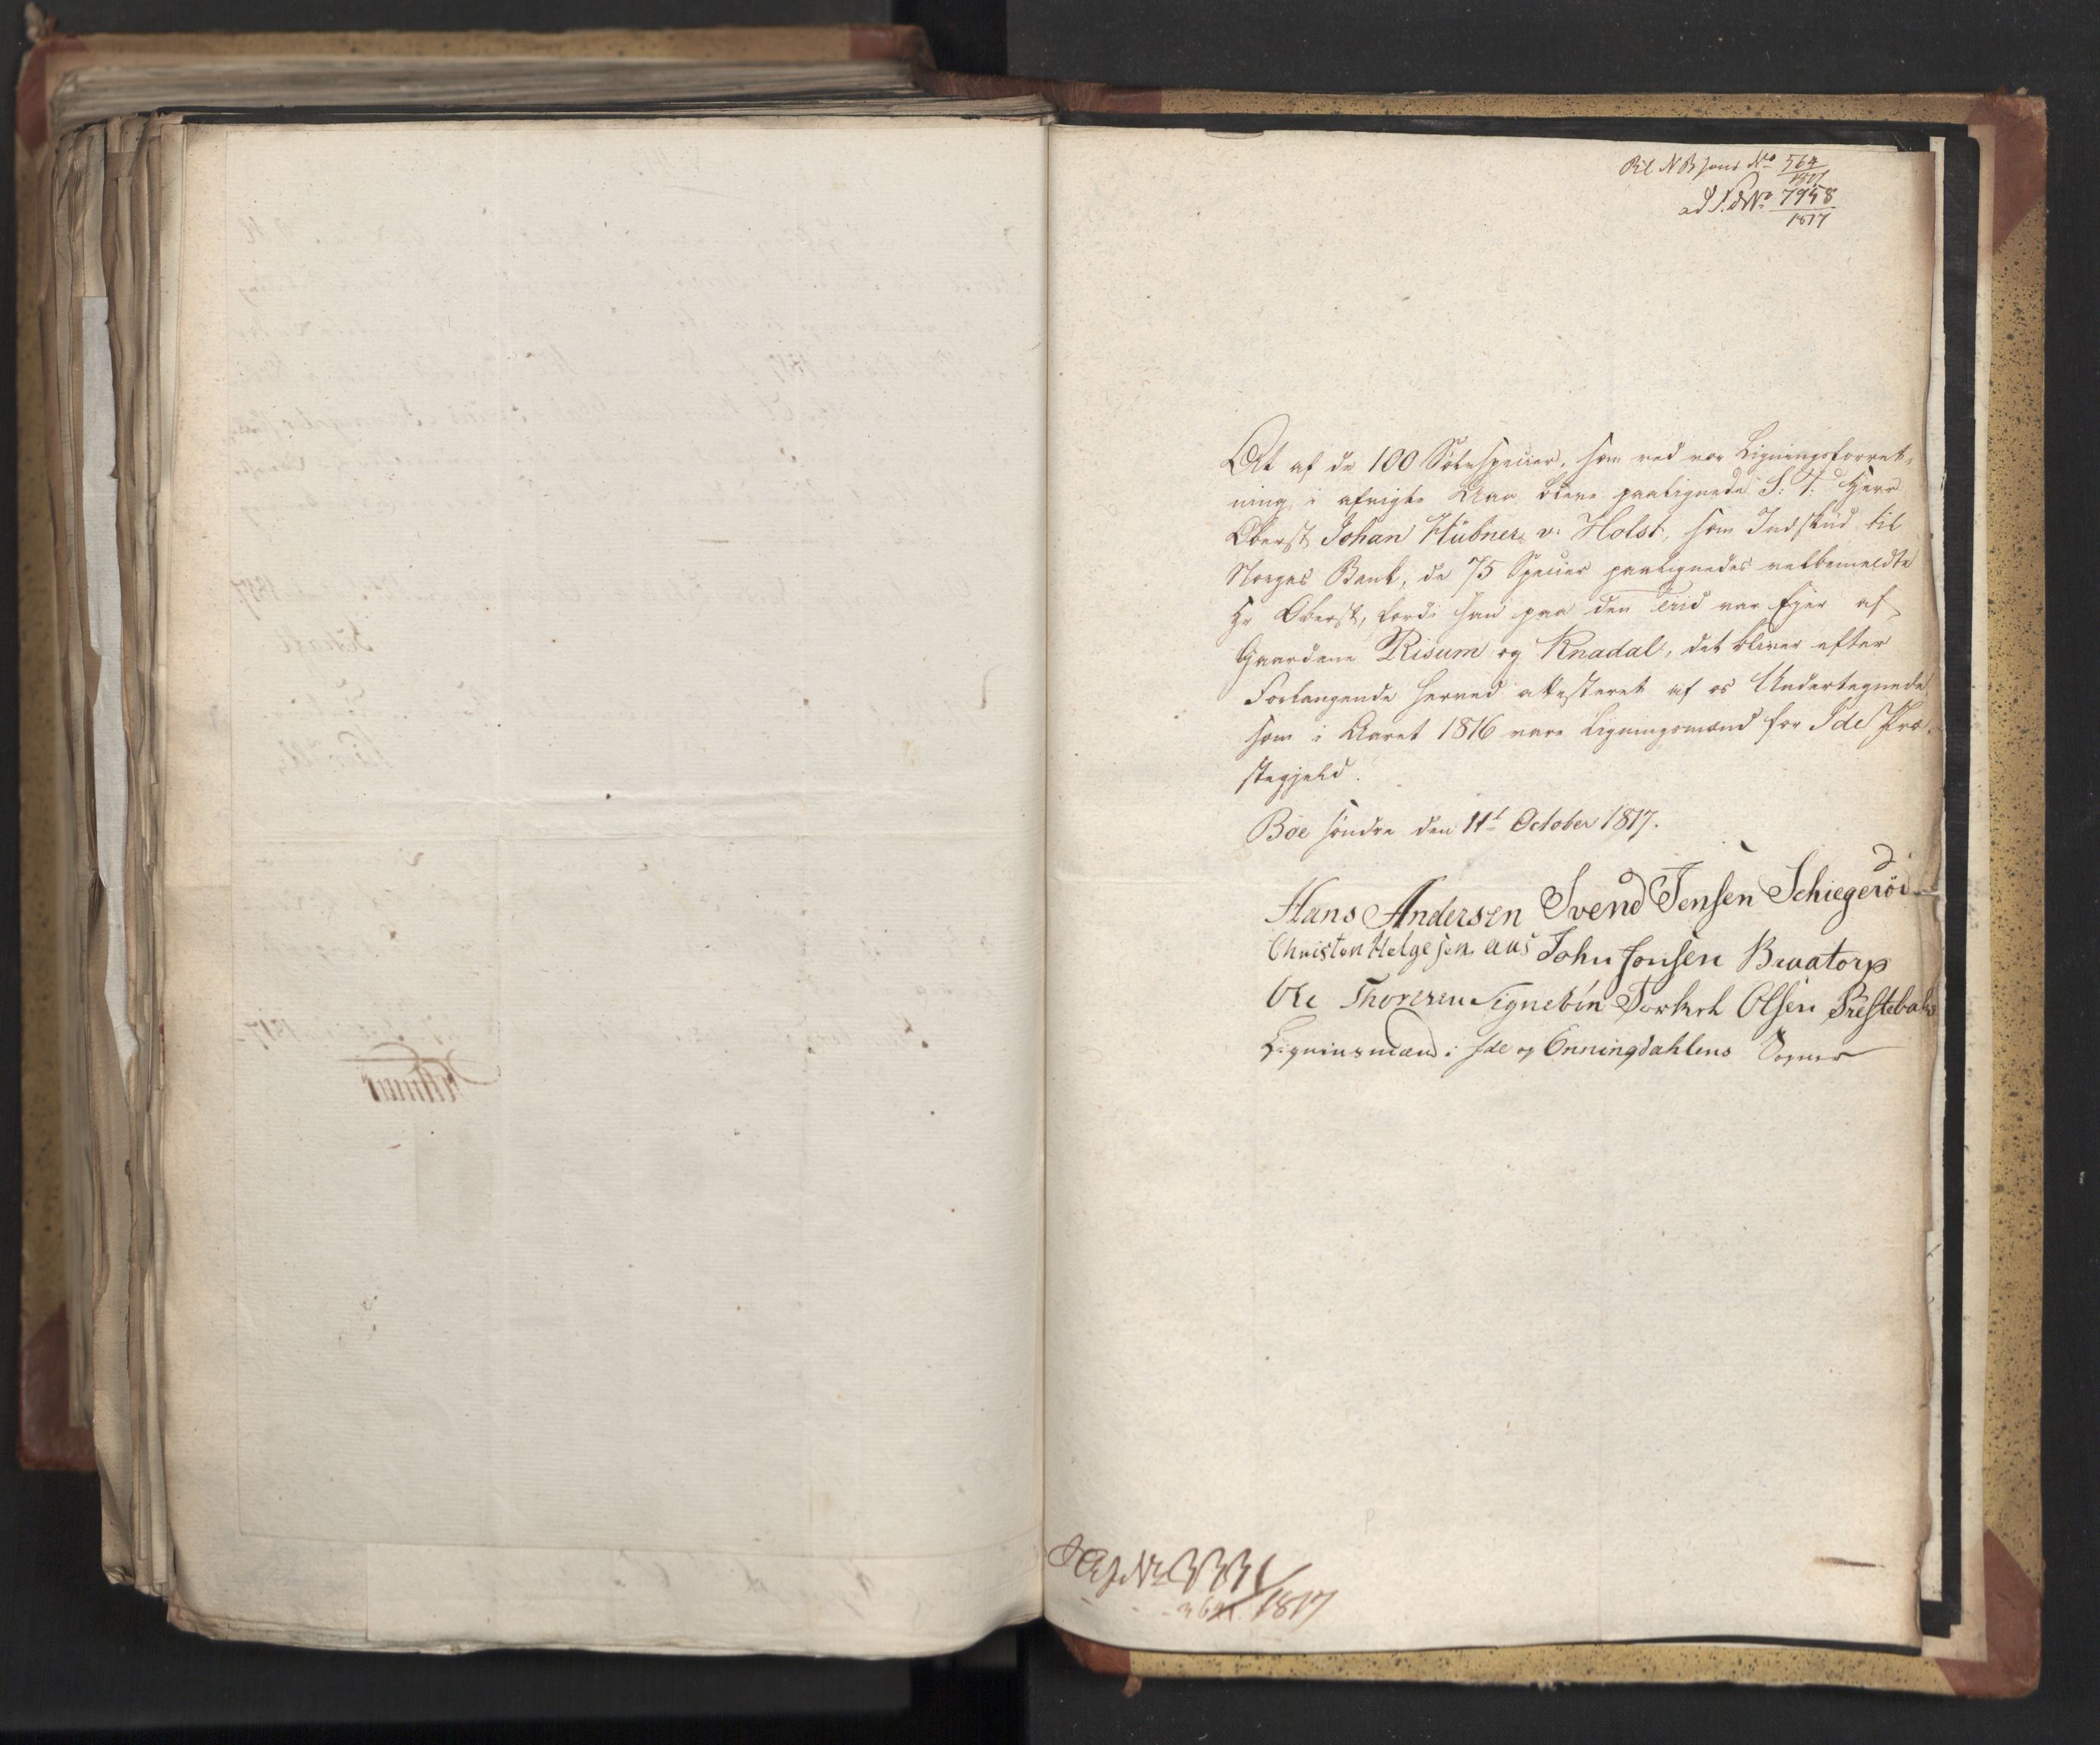 Bil N B Jour No 564/1821
ad S. d No 7958/1817
At af de 100 Sølvspecier, som ved vor Ligningsforret-
ning i afvigte Aar bleve paalignede S: T: Herr
Oberst Johan Hübner v: Holst, som Indskud til
Norges Bank, de 75 Specier paalignedes velbemeldte
Hr Oberst, fordi han paa den Tiid var Ejer af
Gaardene Risum og Knadal, det bliver efter
Forlangende herved attesteret af os Undertegnede
som i Aaret 1816 vare Ligningsmænd for Ide Præ-
stegjeld.
Bøe søndre den 11t October 1817.
Hans Andersen Svend Jensen Schiegeröd
Christen Helgesen aas John Jonsen Braatorp
Ole Thoresen Signebin Torkel Olsen Prestebake
Ligninsmænd i Ide og Enningdahlens Sogner
1817